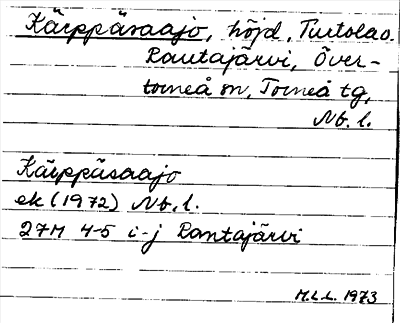 Kärppäsaajo, höjd, Turtola o.
Rantajärvi, Över-
torneå sn, Torneå tg,
Nb. l.
Kärppäsaajo
ek (1972) Nb. l.
27M 4-5 i-j Rantajärvi
M.L.L. 1973